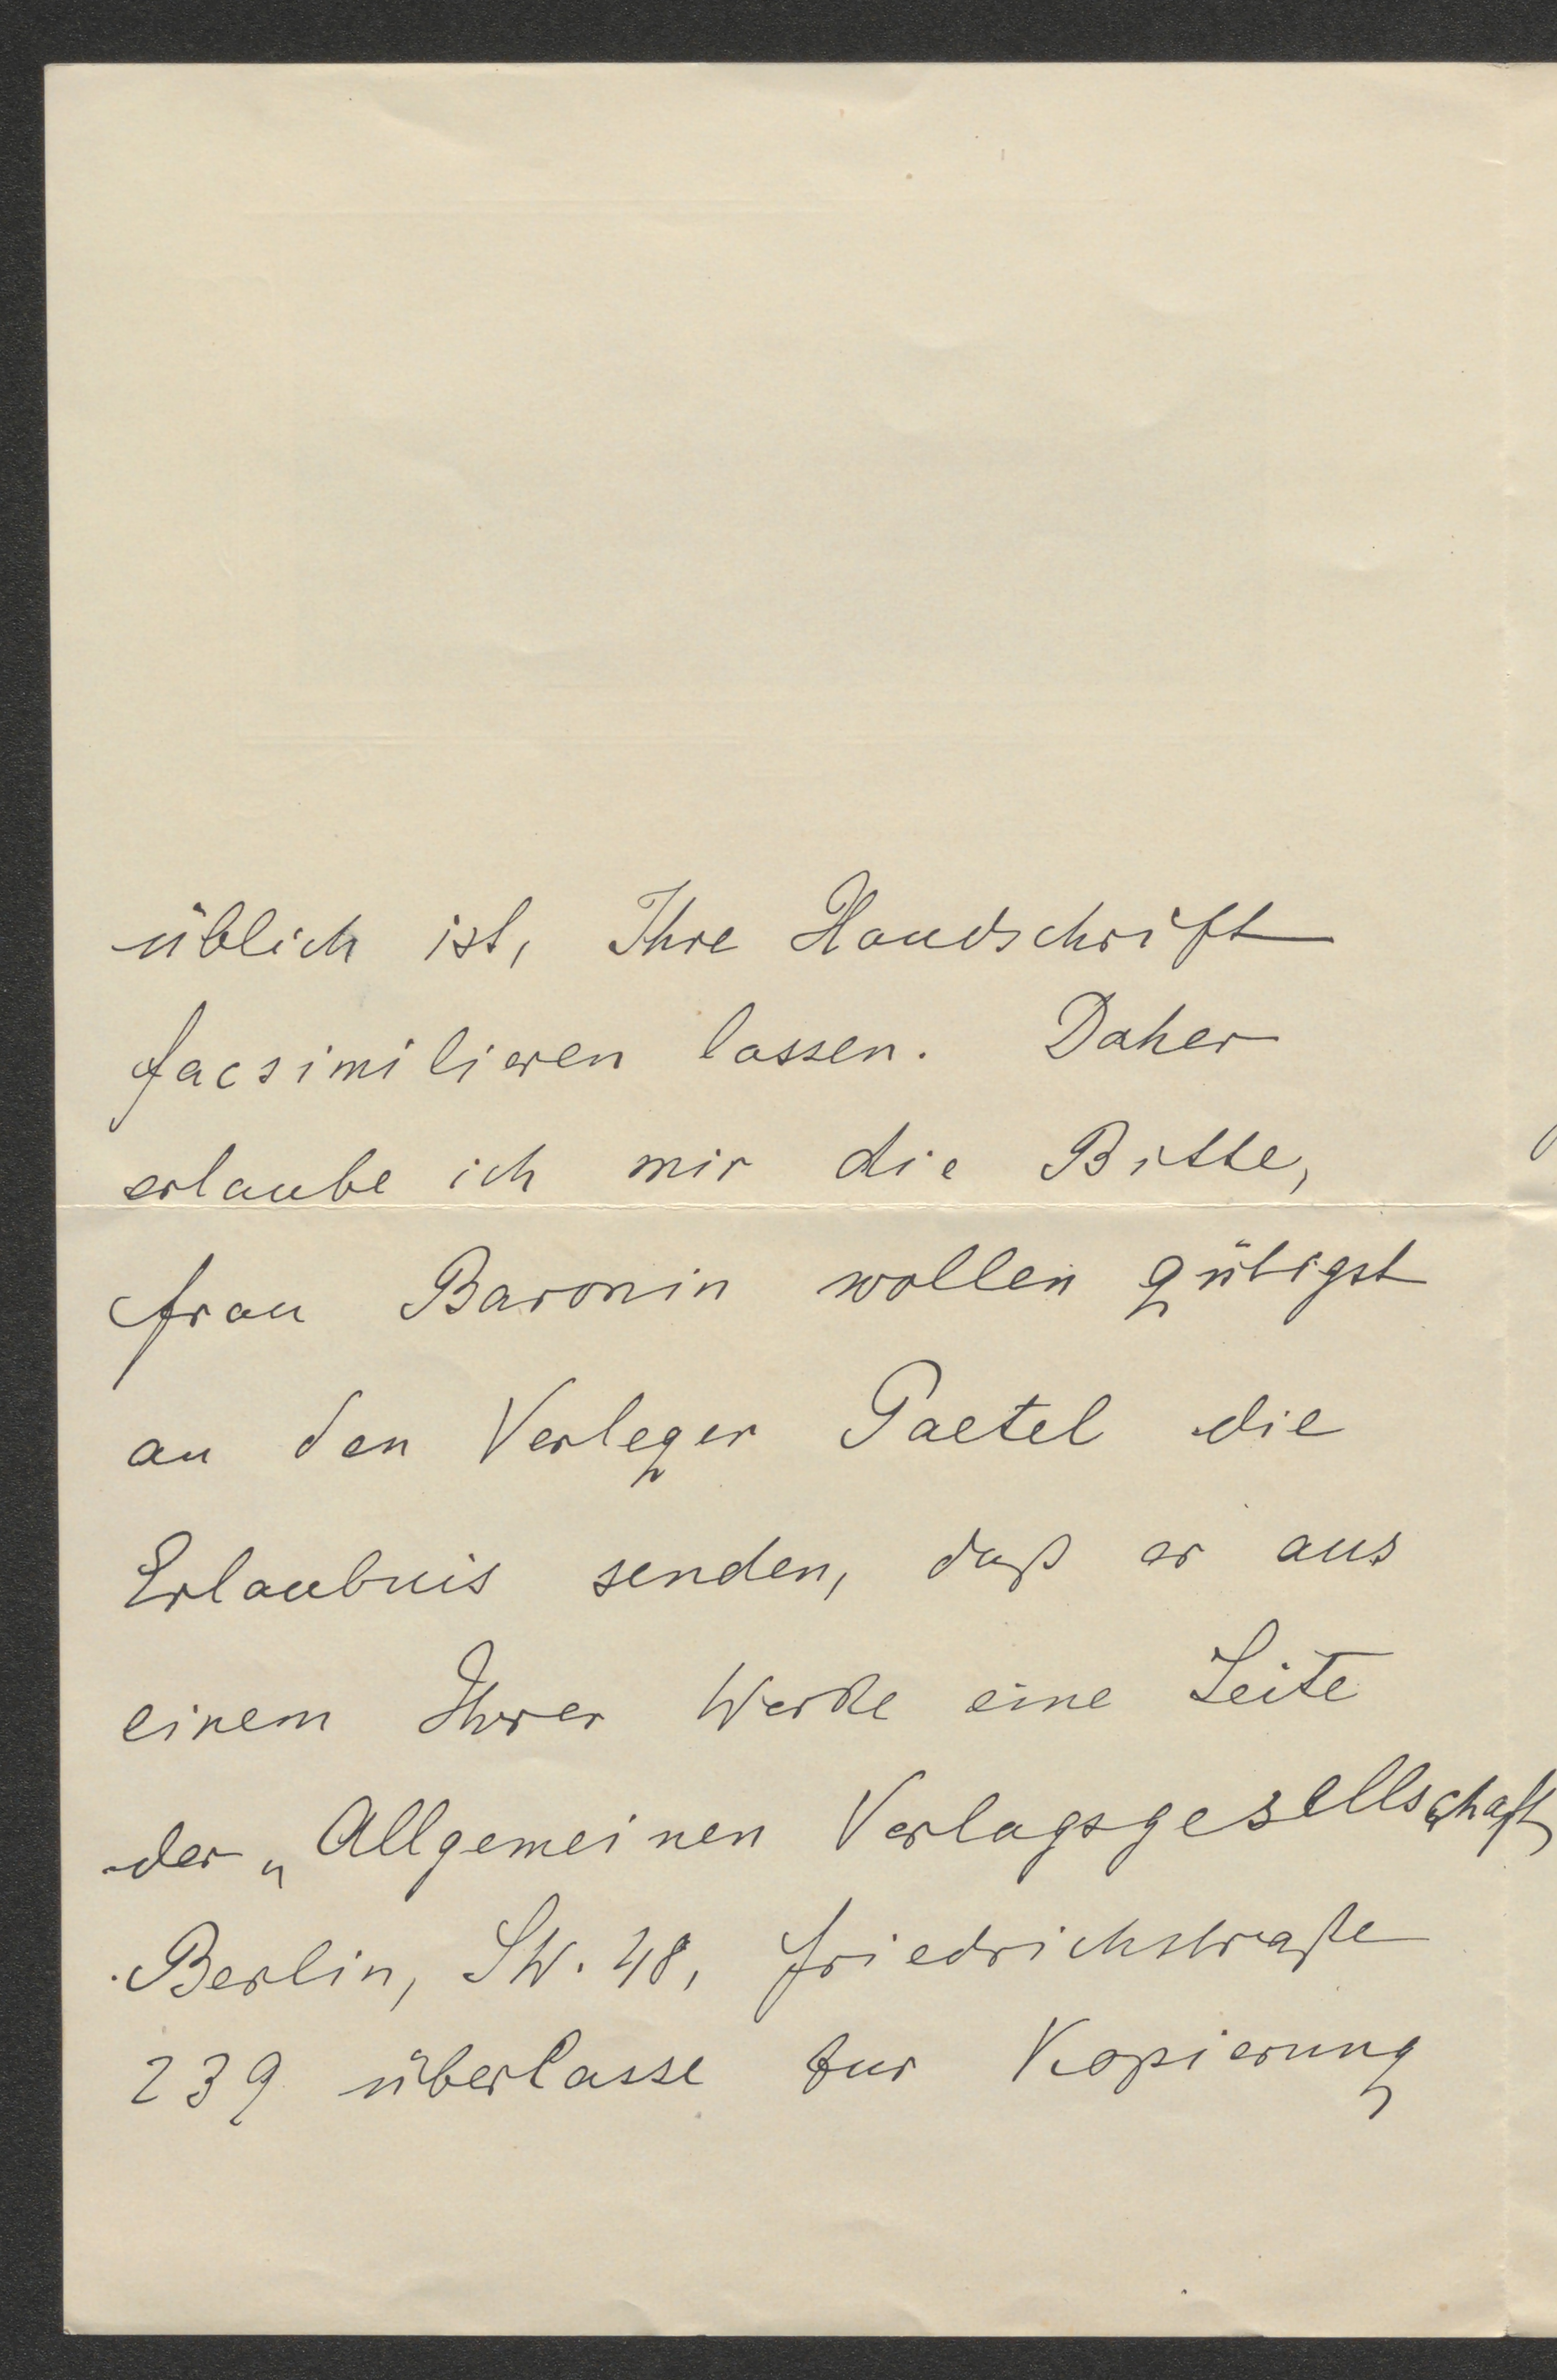 üblich ist, Ihre Handschrift
facsimilieren lassen. Daher
erlaube ich mir die Bitte,
Frau Baronin wollen gütigst
an den Verleger Paetel die
Erlaubnis senden, daß er aus
einem Ihrer Werke eine Seite
der „Allgemeinen Verlagsgesellschaft,
Berlin, SW. 48, Friedrichstraße
239 überlasse zur Kopierung